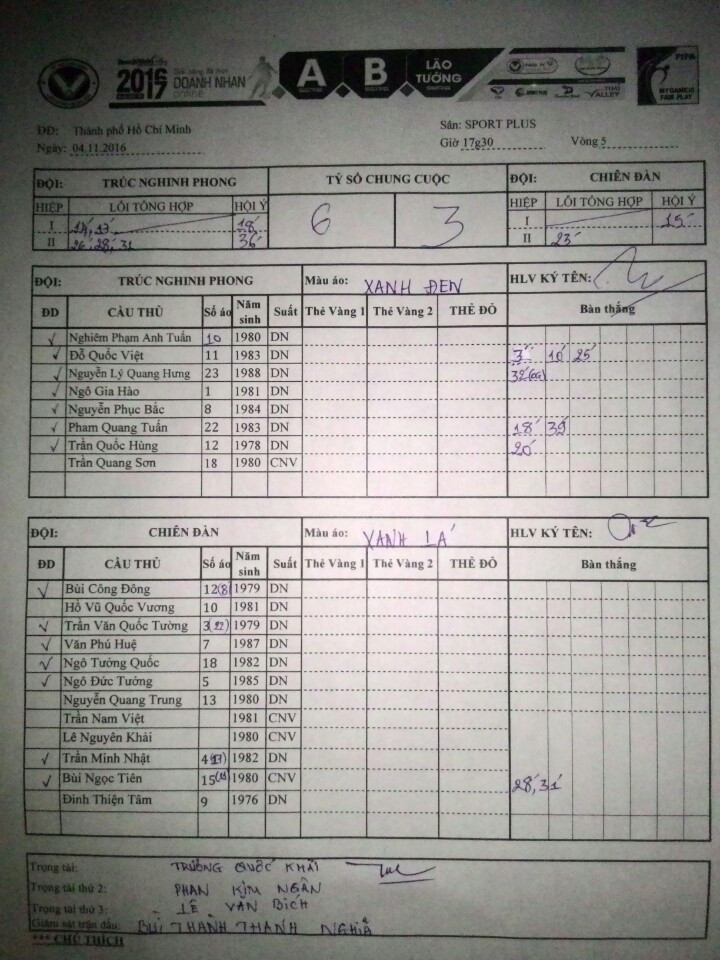 2016 DOANH NHAN
A B LÃO TƯỚNG
FIFA
MY GAME IS FAIR PLAY
ĐĐ: Thành phố Hồ Chí Minh Sân: SPORT PLUS
Ngày: 04.11.2016 Giờ 17g30 Vòng 5
ĐỘI: TRÚC NGHINH PHONG TỶ SỐ CHUNG CUỘC ĐỘI: CHIÊN ĐÀN
HIỆP LỖI TỔNG HỢP HỘI Ý 6 3 HIỆP LỖI TỔNG HỢP HỘI Ý
I 17' 18' I 15'
II 26' 28' 31 36' II 23'
ĐỘI: TRÚC NGHINH PHONG Màu áo: XANH ĐEN HLV KÝ TÊN:
ĐD CẦU THỦ Số áo Năm sinh Suất Thẻ Vàng 1 Thẻ Vàng 2 THẺ ĐỎ Bàn thắng
✓ Nghiêm Phạm Anh Tuấn 10 1980 DN
✓ Đỗ Quốc Việt 11 1983 DN 3' 10' 25'
✓ Nguyễn Lý Quang Hưng 23 1988 DN 32'(OG)
✓ Ngô Gia Hào 1 1981 DN
✓ Nguyễn Phục Bắc 8 1984 DN
✓ Phạm Quang Tuấn 22 1983 DN 18' 39'
✓ Trần Quốc Hùng 12 1978 DN 20'
Trần Quang Sơn 18 1980 CNV
ĐỘI: CHIÊN ĐÀN Màu áo: XANH LÁ HLV KÝ TÊN:
ĐD CẦU THỦ Số áo Năm sinh Suất Thẻ Vàng 1 Thẻ Vàng 2 THẺ ĐỎ Bàn thắng
✓ Bùi Công Đông 12(8) 1979 DN
Hồ Vũ Quốc Vương 10 1981 DN
✓ Trần Văn Quốc Tường 3(22) 1979 DN
✓ Văn Phú Huệ 7 1987 DN
✓ Ngô Tưởng Quốc 18 1982 DN
✓ Ngô Đức Tưởng 5 1985 DN
Nguyễn Quang Trung 13 1980 DN
Trần Nam Việt 1981 CNV
Lê Nguyên Khải 1980 CNV
✓ Trần Minh Nhật 4(17) 1982 DN
✓ Bùi Ngọc Tiên 15 1980 CNV 28', 31'
Đinh Thiện Tâm 9 1976 DN
Trọng tài: TRƯƠNG QUỐC KHẢI
Trọng tài thứ 2: PHAN KIM NGÂN
Trọng tài thứ 3: LÊ VĂN BÍCH
Giám sát trận đấu: BÙI THÀNH THANH NGHĨA
*** CHÚ THÍCH